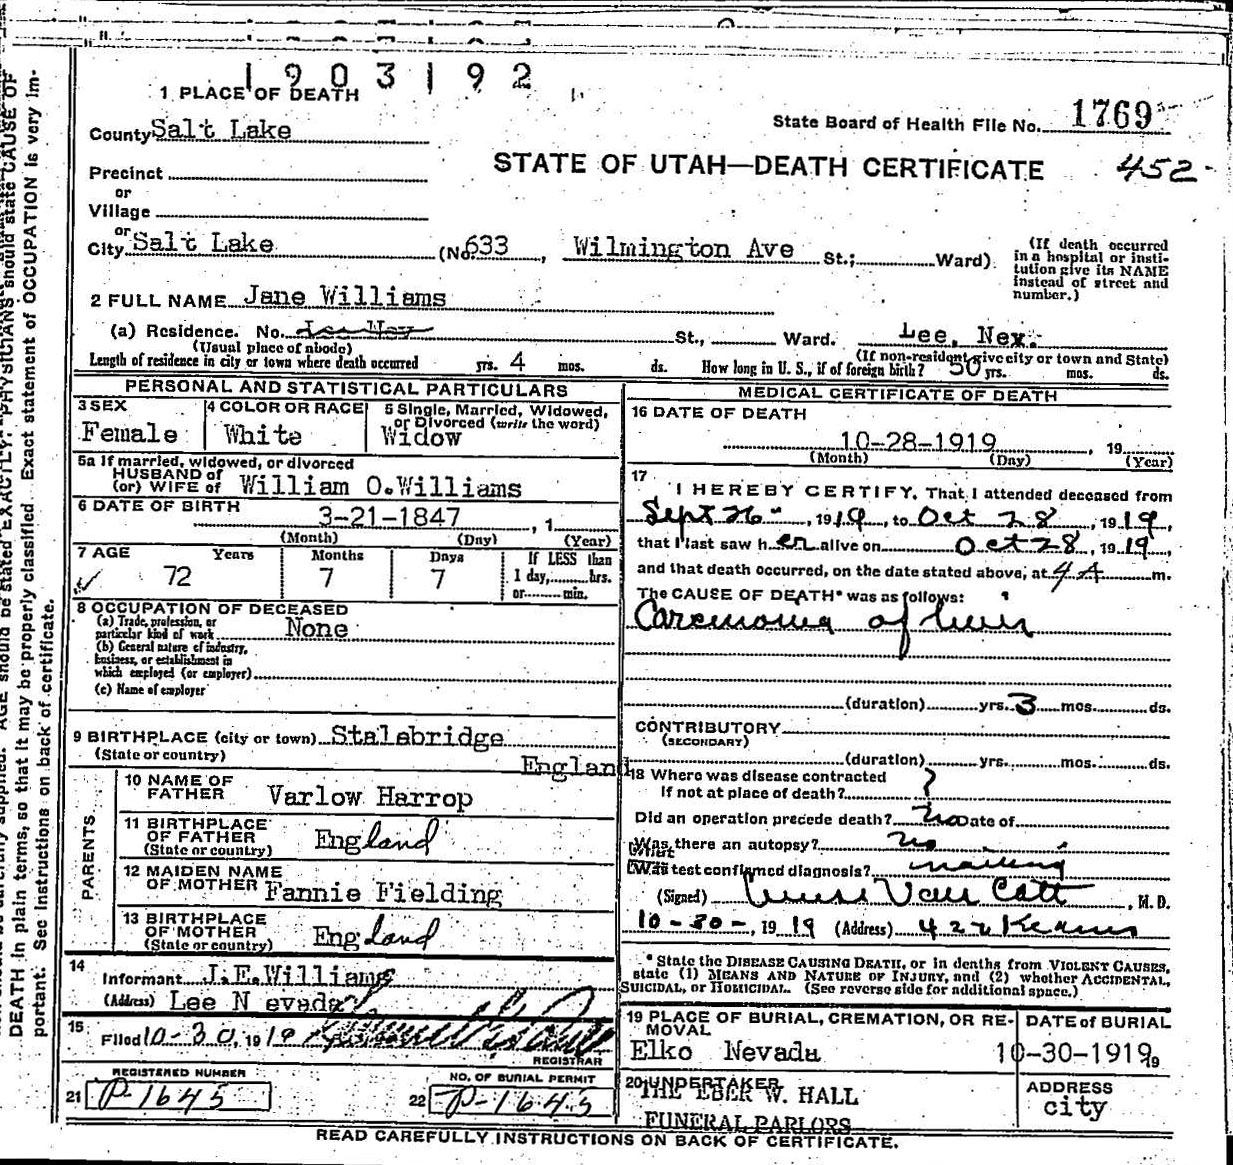 1903192
1 PLACE OF DEATH
County Salt Lake
State Board of Health File No. 1769
STATE OF UTAH—DEATH CERTIFICATE
452
Precinct
or
Village
or
City Salt Lake (No. 633, Wilmington Ave St.; Ward)
(If death occurred in a hospital or insti-
tution give its NAME
instead of street and
number.)
2 FULL NAME Jane Williams
(a) Residence. No. St., Ward. Lee, Nev.
(Usual place of abode) (If non-resident give city or town and State)
Length of residence in city or town where death occurred yrs. 4 mos. ds. How long in U. S., if of foreign birth? 50 yrs. mos. ds.
PERSONAL AND STATISTICAL PARTICULARS
3 SEX
Female
4 COLOR OR RACE
White
5 Single, Married, Widowed,
or Divorced (write the word)
Widow
5a If married, widowed, or divorced
HUSBAND of
(or) WIFE of William O. Williams
6 DATE OF BIRTH
3-21-1847, 1
(Month) (Day) (Year)
7 AGE Years Months Days If LESS than
72 7 7 1 day, hrs.
or min.
8 OCCUPATION OF DECEASED
(a) Trade, profession, or
particular kind of work None
(b) General nature of industry,
business, or establishment in
which employed (or employer)
(c) Name of employer
9 BIRTHPLACE (city or town) Stalebridge
(State or country) England
PARENTS
10 NAME OF
FATHER Varlow Harrop
11 BIRTHPLACE
OF FATHER England
(State or country)
12 MAIDEN NAME
OF MOTHER Fannie Fielding
13 BIRTHPLACE
OF MOTHER England
(State or country)
14
Informant J.E.Williams
(Address) Lee Nevada
15
Filed 10-30, 1919
REGISTRAR
REGISTERED NUMBER
21 P-1645
NO. OF BURIAL PERMIT
22 P-1645
MEDICAL CERTIFICATE OF DEATH
16 DATE OF DEATH
10-28-1919, 19
(Month) (Day) (Year)
17
I HEREBY CERTIFY, That I attended deceased from
Sept 26, 1919, to Oct 28, 1919,
that I last saw her alive on Oct 28, 1919,
and that death occurred, on the date stated above, at 4 A m.
The CAUSE OF DEATH* was as follows:
Carcinoma of liver
(duration) yrs. 3 mos. ds.
CONTRIBUTORY
(SECONDARY)
(duration) yrs. mos. ds.
18 Where was disease contracted
If not at place of death? ?
Did an operation precede death? no Date of
Was there an autopsy? no
What
Was test confirmed diagnosis?
(Signed) Van Cott, M.D.
10-30-, 1919 (Address) 422 Kearns
* State the DISEASE CAUSING DEATH, or in deaths from VIOLENT CAUSES,
state (1) MEANS AND NATURE OF INJURY, and (2) whether ACCIDENTAL,
SUICIDAL, or HOMICIDAL. (See reverse side for additional space.)
19 PLACE OF BURIAL, CREMATION, OR RE-
MOVAL
Elko Nevada
DATE of BURIAL
10-30-1919, 19
20 UNDERTAKER
THE EBER W. HALL
FUNERAL PARLORS
ADDRESS
city
READ CAREFULLY INSTRUCTIONS ON BACK OF CERTIFICATE.
AGE should be stated EXACTLY. PHYSICIANS should state CAUSE OF
DEATH in plain terms, so that it may be properly classified. Exact statement of OCCUPATION is very im-
portant. See instructions on back of certificate.